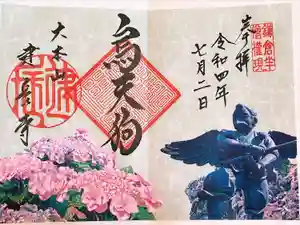 鎌倉半
奉拝
令和四年
七月二日
烏天狗
大本山
建長寺